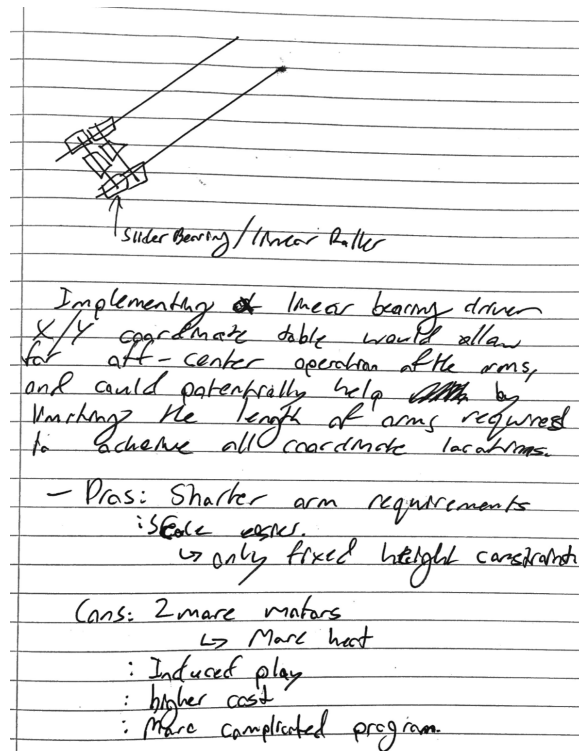 Slider Bearing/linear Roller
Implementing a linear bearing driven
X/Y coordinate table would allow
for off-center operation of the arms,
and could potentially help by
limiting the length of arms required
to acheive all coordinate locations.
- Pros: Shorter arm requirements
: Scale easier.
↳ only fixed height constraint
Cons: 2 more motors
↳ More heat
: Induced play
: higher cost
: More complicated program.